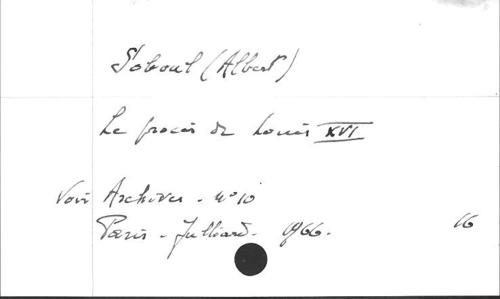 Soboul (Albert)
Le procès de Louis XVI
Voir Archives - n° 10
Paris - Julliard - 1966. 16